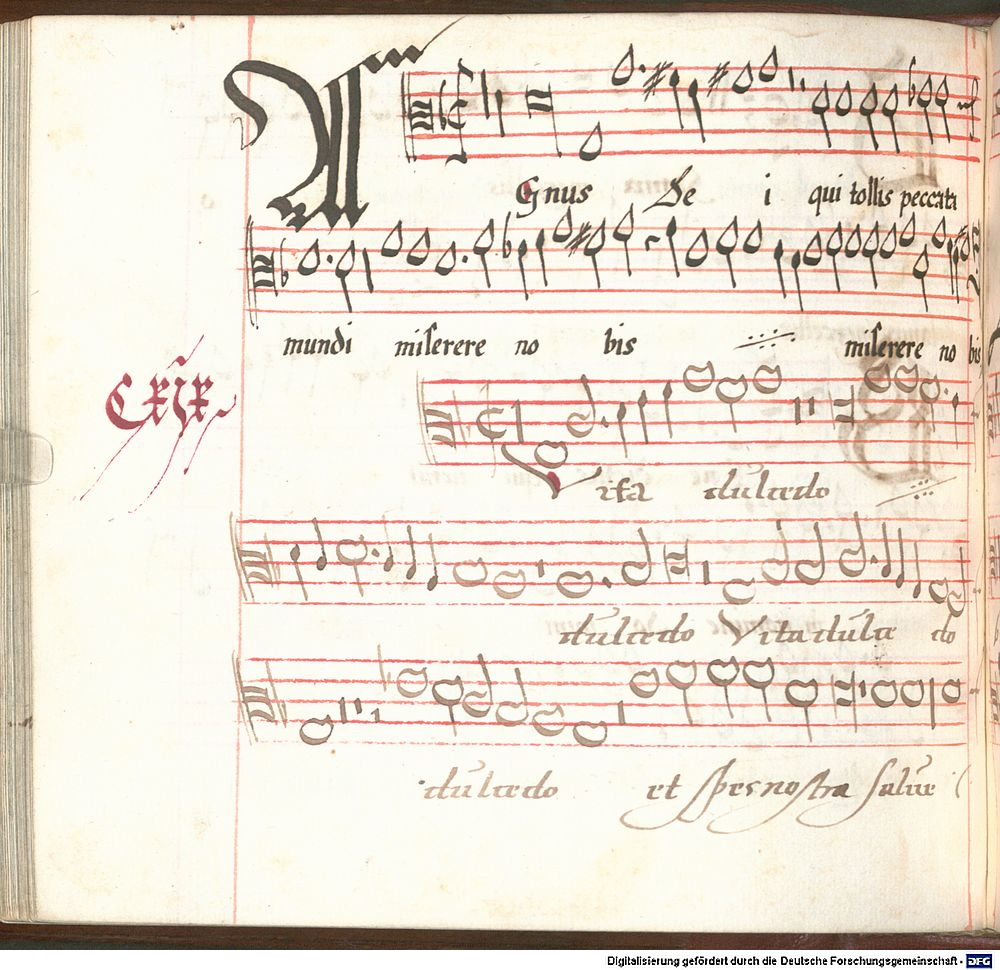 AGnus De i qui tollis peccata
mundi miserere no bis miserere no bis
Cxix
Vita dulcedo
dulcedo Vita dulce do
dulcedo et spes nostra salue
Digitalisierung gefördert durch die Deutsche Forschungsgemeinschaft - DFG